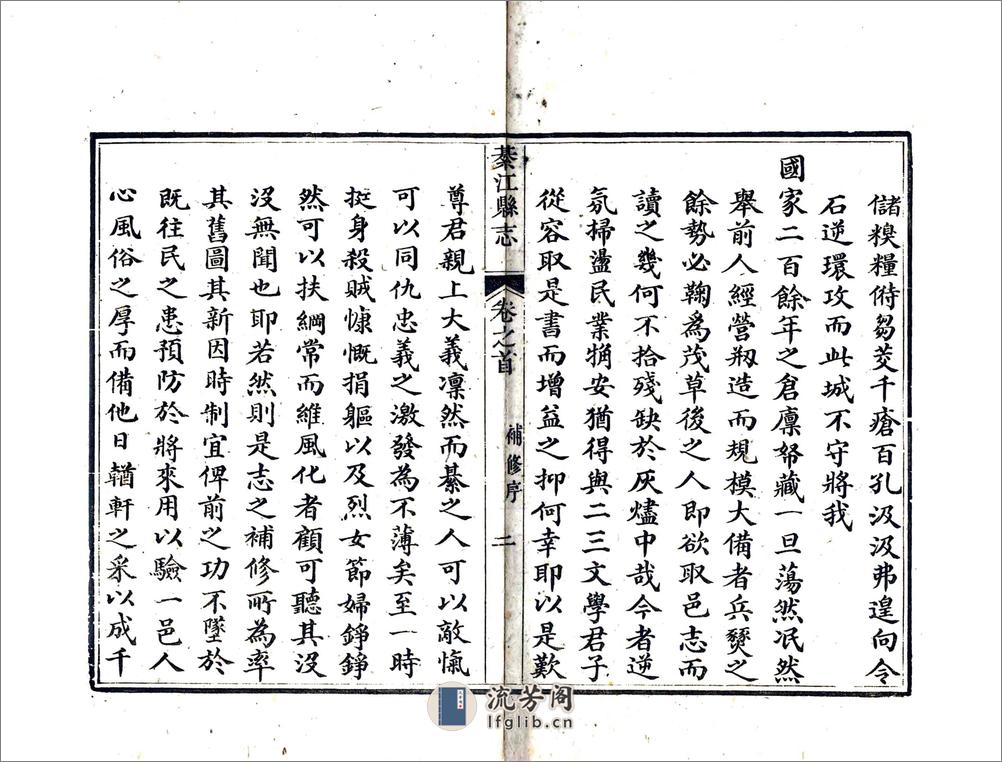 儲糗糧偫芻茭千瘡百孔汲汲弗遑向令
石逆環攻而此城不守將我
國家二百餘年之倉廩帑藏一旦蕩然冺然
舉前人經營剏造而規模大備者兵燹之
餘勢必鞠為茂草後之人即欲取邑志而
讀之幾何不拾殘缺於灰燼中哉今者逆
氛掃盪民業觕安猶得與二三文學君子
從容取是書而增益之抑何幸耶以是歎
綦江縣志
卷之首
補修序
二
尊君親上大義凜然而綦之人可以敵愾
可以同仇忠義之激發為不薄矣至一時
挺身殺賊慷慨捐軀以及烈女節婦錚錚
然可以扶綱常而維風化者顧可聽其沒
沒無聞也耶若然則是志之補修所為率
其舊圖其新因時制宜俾前之功不墜於
既往民之患預防於將來用以驗一邑人
心風俗之厚而備他日輶軒之采以成千
流芳阁
lfglib.cn